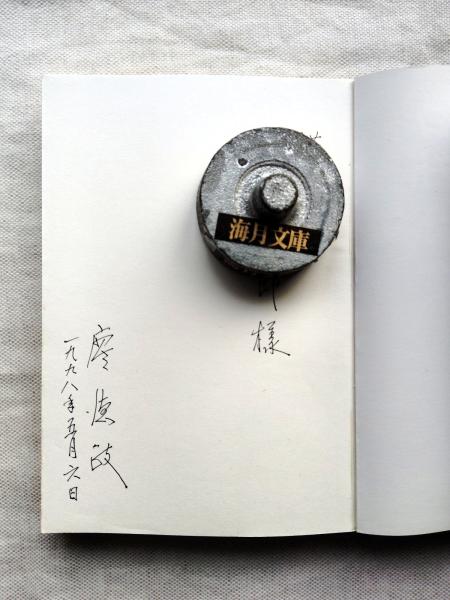 海月文庫
様
廖德政
一九九八年五月六日